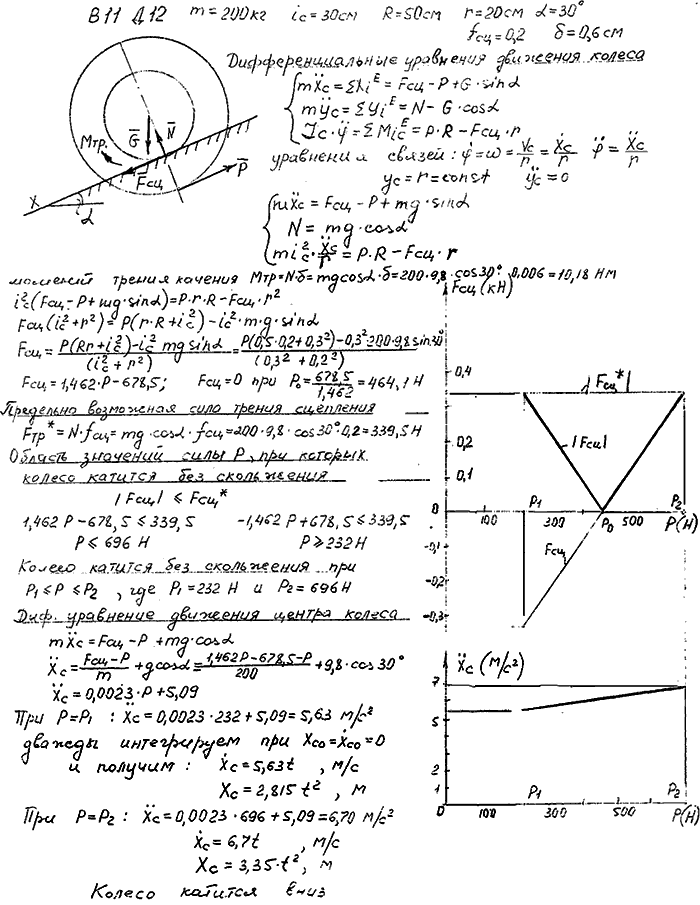 В11 Д12 m=200кг i_c=30см R=50см r=20см α=30°
f_сц=0,2 δ=0,6см
Дифференциальные уравнения движения колеса
mẍ_c=ΣX_i^E=F_сц-P+G·sinα
mÿ_c=ΣY_i^E=N-G·cosα
J_c·φ̈=ΣM_ic^E=P·R-F_сц·r
уравнения связей: φ̇=ω=V_c/r=ẋ_c/r φ̈=ẍ_c/r
y_c=r=const ÿ_c=0
mẍ_c=F_сц-P+mg·sinα
N=mg·cosα
mi_c²·ẍ_c/r=P·R-F_сц·r
Mтр. G̅ N̅ F̅_сц P̅ X α
момент трения качения Mтр=N·δ=mgcosα·δ=200·9,8·cos30°·0,006=10,18 НМ
i_c²(F_сц-P+mg·sinα)=P·r·R-F_сц·r²
F_сц(i_c²+r²)=P(r·R+i_c²)-i_c²·m·g·sinα
F_сц=P(Rr+i_c²)-i_c²mgsinα/(i_c²+r²)=P(0,5·0,2+0,3²)-0,3²·200·9,8sin30°/(0,3²+0,2²)
F_сц=1,462·P-678,5; F_сц=0 при P₀=678,5/1,462=464,1Н
Предельно возможная сила трения сцепления
Fтр*=N·f_сц=mg·cosα·f_сц=200·9,8·cos30°·0,2=339,5Н
Область значений силы P, при которых
колесо катится без скольжения
|F_сц|≤F_сц*
1,462P-678,5≤339,5 -1,462P+678,5≤339,5
P≤696Н P≥232Н
Колесо катится без скольжения при
P₁≤P≤P₂, где P₁=232Н и P₂=696Н
Диф. уравнение движения центра колеса
mẍ_c=F_сц-P+mg·cosα
ẍ_c=F_сц-P/m+gcosα=1,462P-678,5-P/200+9,8·cos30°
ẍ_c=0,0023·P+5,09
При P=P₁: ẍ_c=0,0023·232+5,09=5,63 м/с²
дважды интегрируем при X_co=ẋ_co=0
и получим: ẋ_c=5,63t, м/с
X_c=2,815t², м
При P=P₂: ẍ_c=0,0023·696+5,09=6,70 м/с²
ẋ_c=6,7t, м/с
X_c=3,35·t², м
Колесо катится вниз
F_сц(кН)
0,4
|F_сц*|
0,2
|F_сц|
0,1
P₁ P₂
0 100 300 P₀ 500 P(Н)
-0,1
F_сц
-0,2
-0,3
Ẍ_c(м/с²)
7
5
2
1
P₁ P₂
0 100 300 500 P(Н)